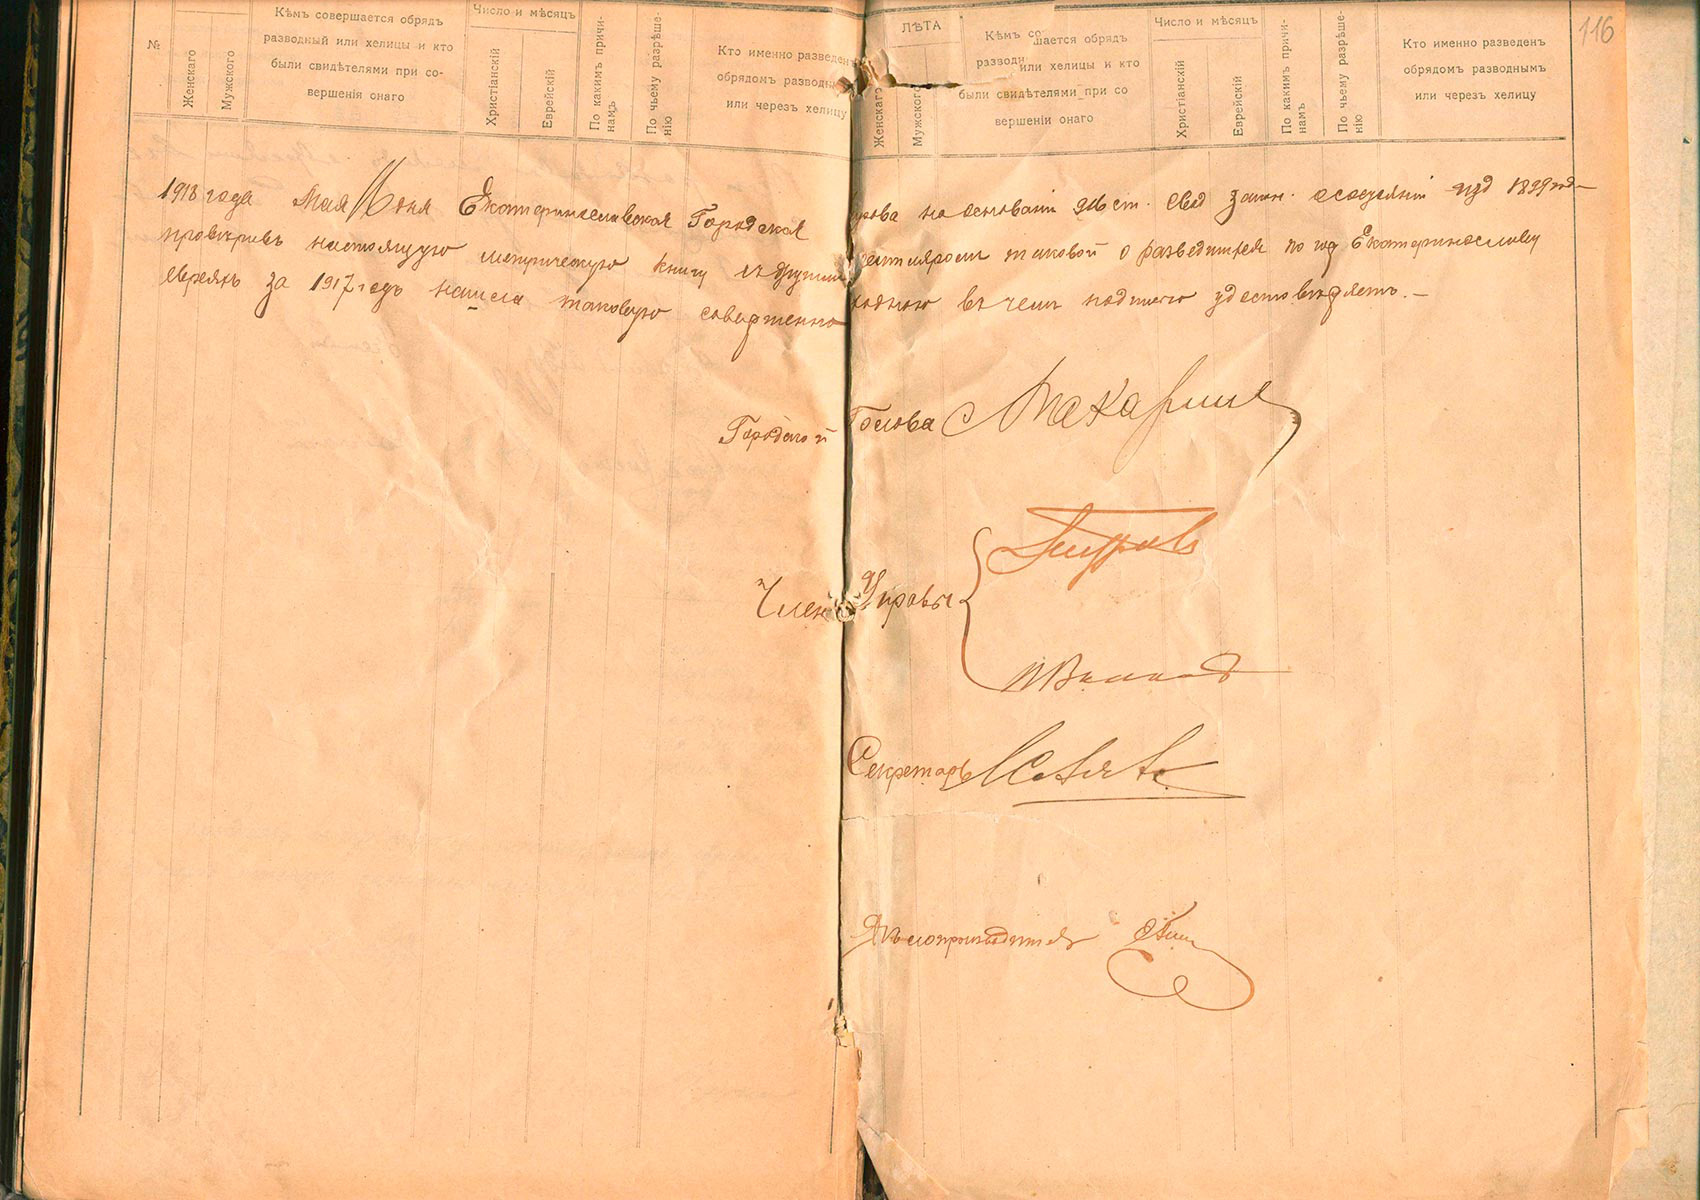 116
№
Женскаго
Мужского
Кѣмъ совершается обрядъ
разводный или хелицы и кто
были свидѣтелями при со-
вершенія онаго
Число и мѣсяцъ
Христіанскій
Еврейскій
По какимъ причи-
намъ
По чьему разрѣше-
нію
Кто именно разведенъ
обрядомъ разводны
или черезъ хелицу
ЛѢТА
Женскаго
Мужского
Кѣмъ со
шается обрядъ
разводн
или хелицы и кто
были свидѣтелями при со
вершеніи онаго
Число и мѣсяцъ
Христіанскій
Еврейскій
По какимъ причи-
намъ
По чьему разрѣше-
нію
Кто именно разведенъ
обрядомъ разводнымъ
или черезъ хелицу
1918 года Мая дня Екатеринославская Городская рава на основаніи ст. Свод Закон. о состояніи изд 1899 год-
провѣривъ настоящую метрическую книгу съ другим земпляромъ таковой о разводѣ по гор Екатеринославу
евреевъ за 1917 годъ нашла таковую совершенно ходною въ чемъ подписью удостовѣряетъ.—
Городской Голова Макар
Член Управы
Секретарь
Дѣлопроизводитель